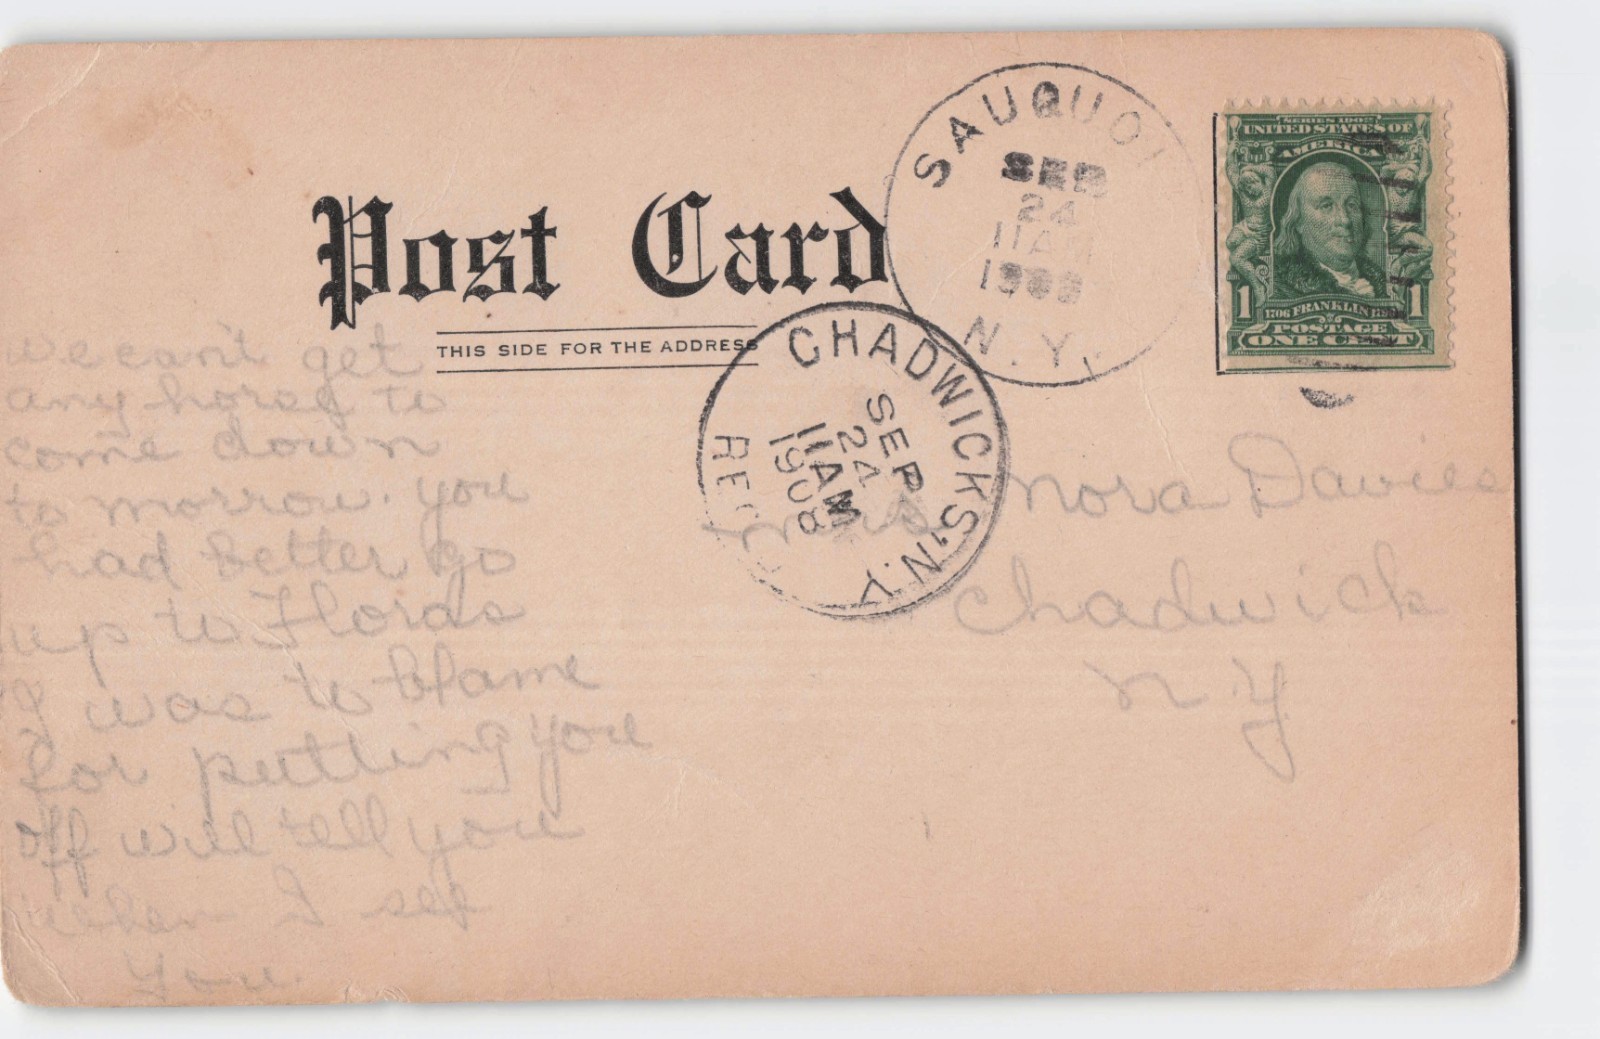 Post Card
THIS SIDE FOR THE ADDRESS
SAUQUOI
SEP
24
11AM
N.Y.
CHADWICKS, N.Y.
SEP
24
11AM
1908
REC
SERIES 1902
UNITED STATES OF
AMERICA
1 1
1706 FRANKLIN 1790
POSTAGE
ONE CENT
we can't get
any horse to
come down
to morrow. you
had better go
up to Floras
I was to blame
for putting you
off will tell you
when I see
you.
Miss Nora Davies
Chadwick
N Y